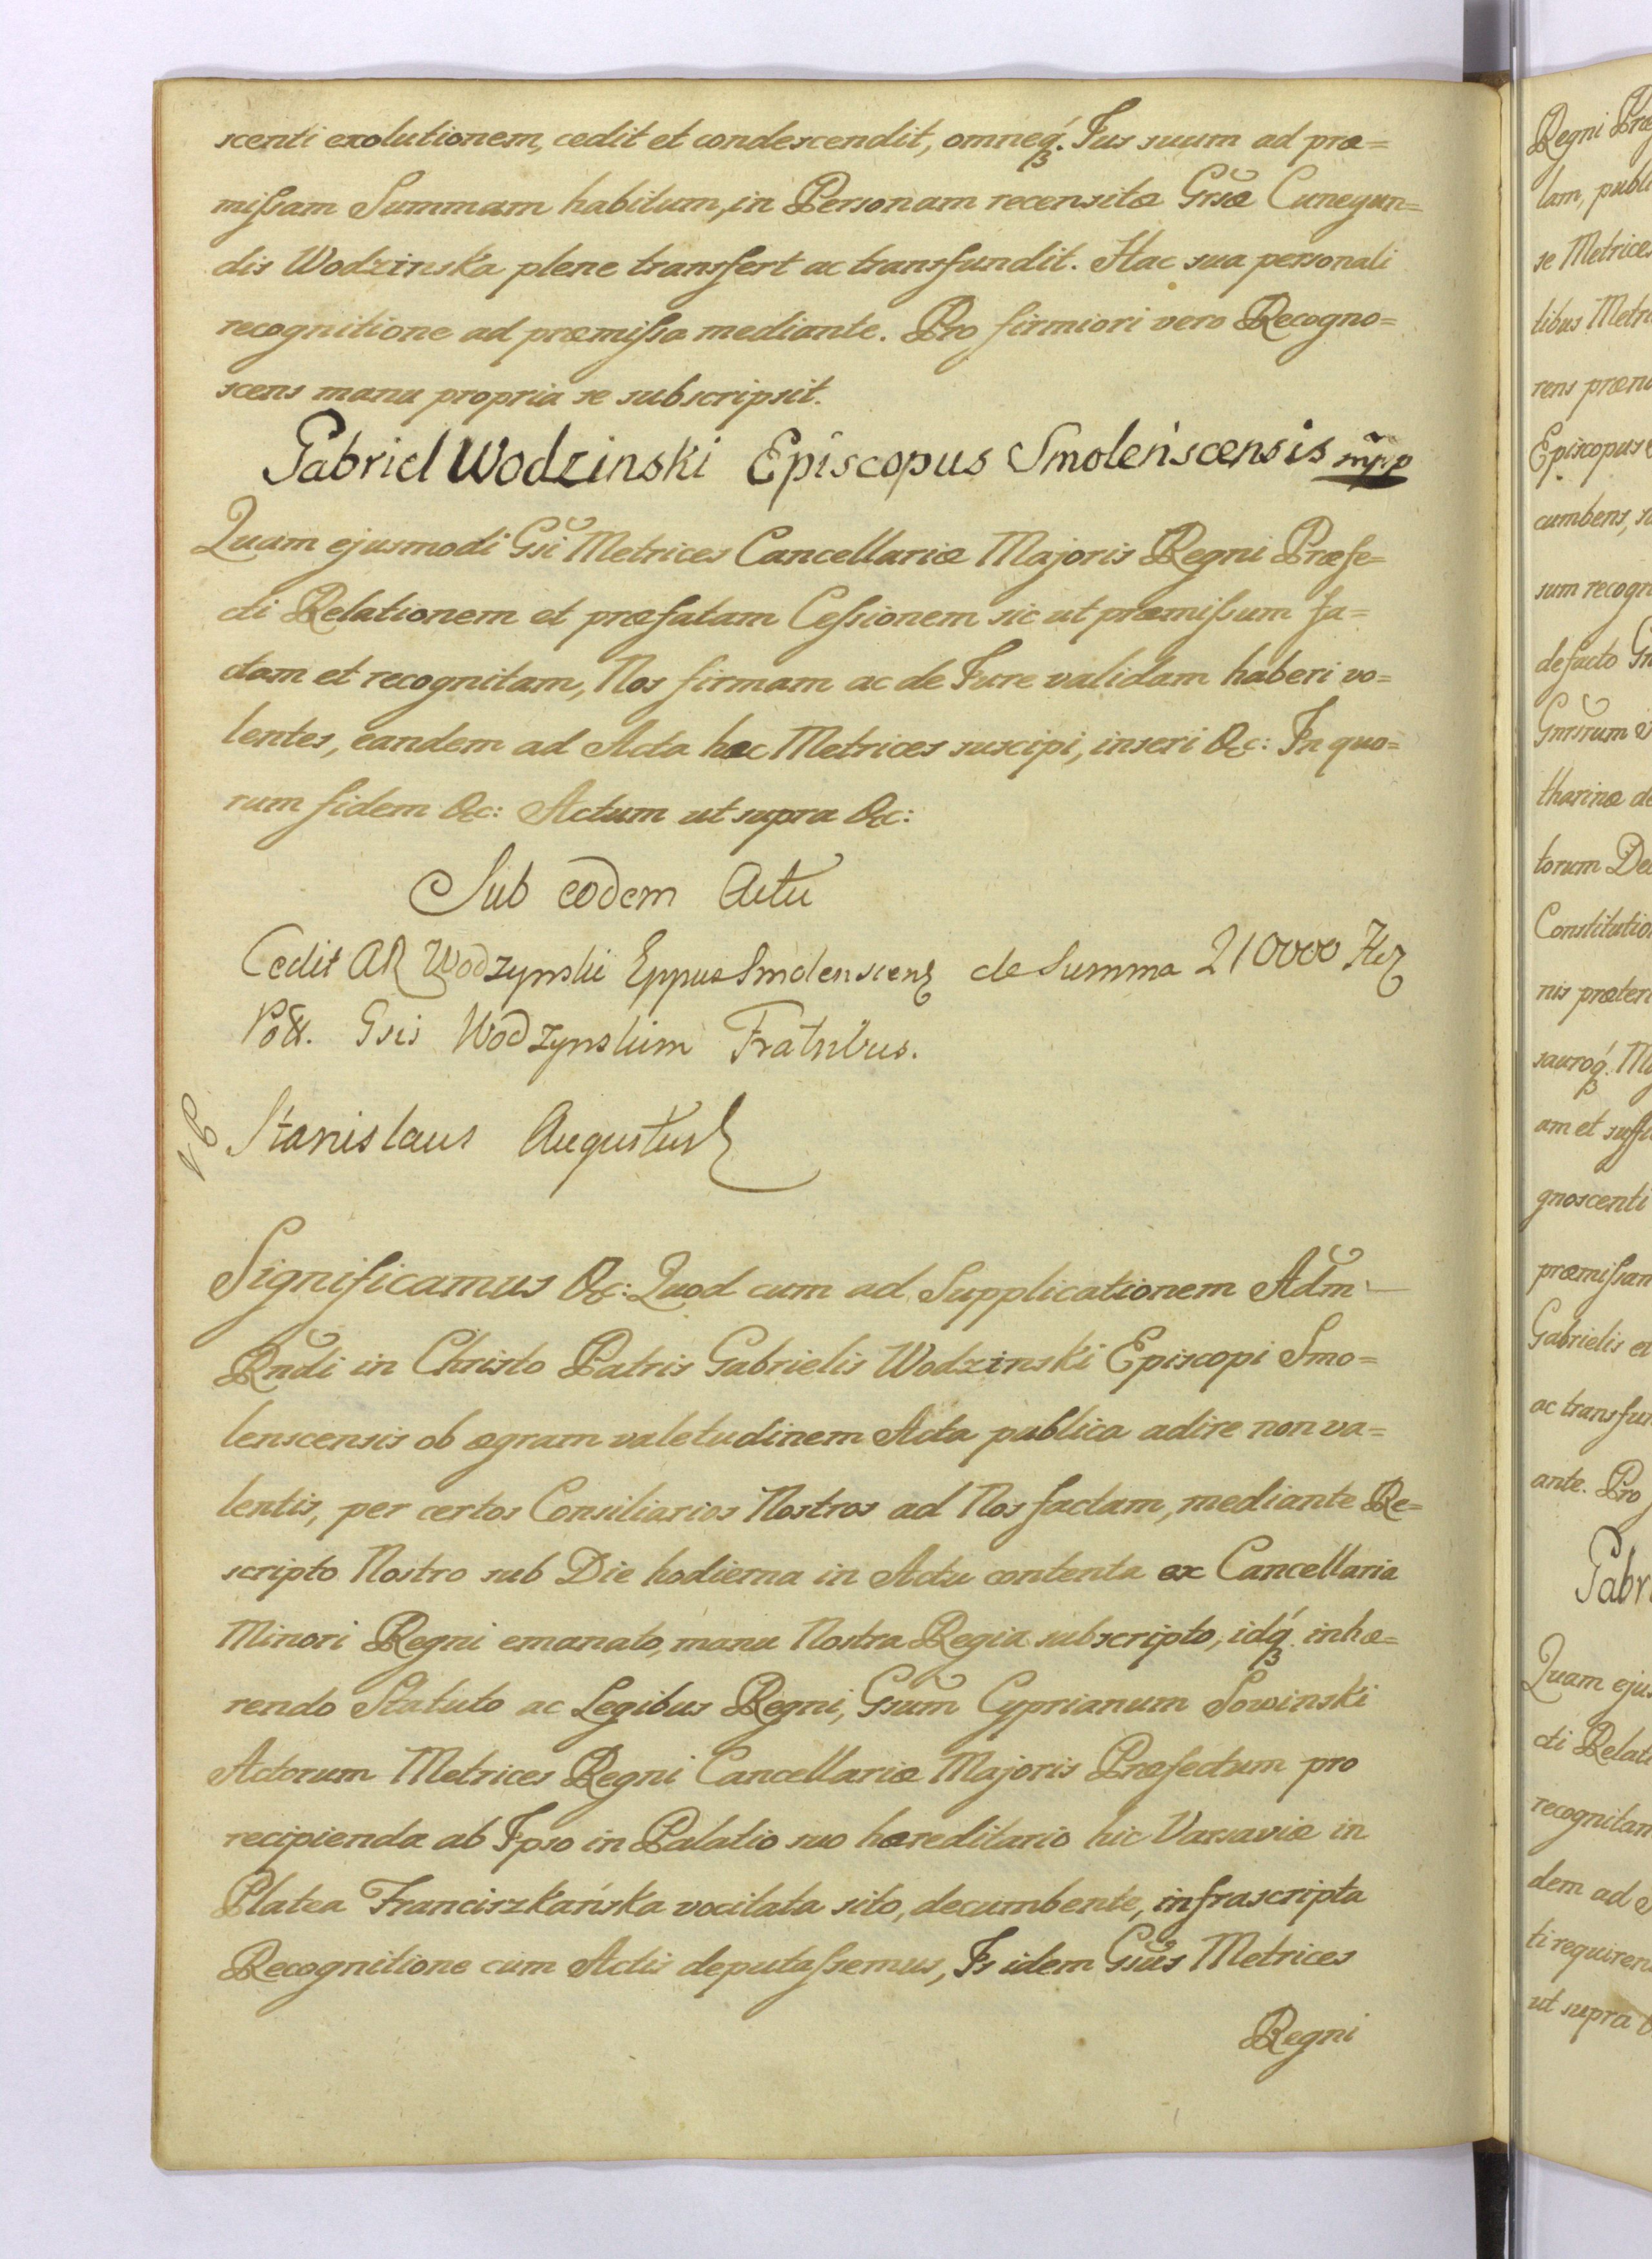 scenti exolutionem, cedit et condescendit, omneq́₃. Jus suum ad præ=
missam Summam habitum, in Personam recensitæ Gr̃sæ Cunegun=
dis Wodzinska plene transfert ac transfundit. Hac sua personali
recognitione ad præmissa mediante. Pro firmiori vero Recogno=
scens manu propria se subscripsit.
Gabriel Wodzinski Episcopus Smoleńscensis mp̃p
Quam ejusmodi Gs̃i Metrices Cancellariæ Majoris Regni Præfe=
cti Relationem et præfatam Cessionem sic ut præmissum fa=
ctam et recognitam, Nos firmam ac de Jure validam haberi vo=
lentes, eandem ad Acta hæc Metrices suscipi, inseri &c: In quo=
rum fidem &c: Actum ut supra &c:
Sub eodem Actu
Cedit AR Wodzynski Eppus Smolenscens de Summa 210000
Gsis Wodzynskim Fratribus.
Stanislaus Augustus
Significamus &c: Quod cum ad Supplicationem Adm̃
Rñdi in Christo Patris Gabrielis Wodzinski Episcopi Smo=
lenscensis ob ægram valetudinem Acta publica adire non va=
lentis, per certos Consiliarios Nostros ad Nos factam, mediante Re=
scripto Nostro sub Die hodierna in Actu contenta ex Cancellaria
Minori Regni emanato, manu Nostra Regia subscripto, idq́₃. inhæ=
rendo Statuto ac Legibus Regni, Gsũm Cyprianum Sowinski
Actorum Metrices Regni Cancellariæ Majoris Præfectum pro
recipienda ab Ipso in Palatio suo hæreditario hic Varsaviæ in
Platea Franciszkańska vocitata sito, decumbente, infrascripta
Recognitione cum Actis deputassemus, Is idem Gsũs Metrices
Regni
Regni
lam,
se Metrices
tibus
rens
Episcopus
cumbens,
sum
de facto
Gnrsrum
tharinæ
torum
nis
am et
gnoscenti
præmissam
Gabrielis et
ante. Pro
Quam
cti
dem ad
ut supra